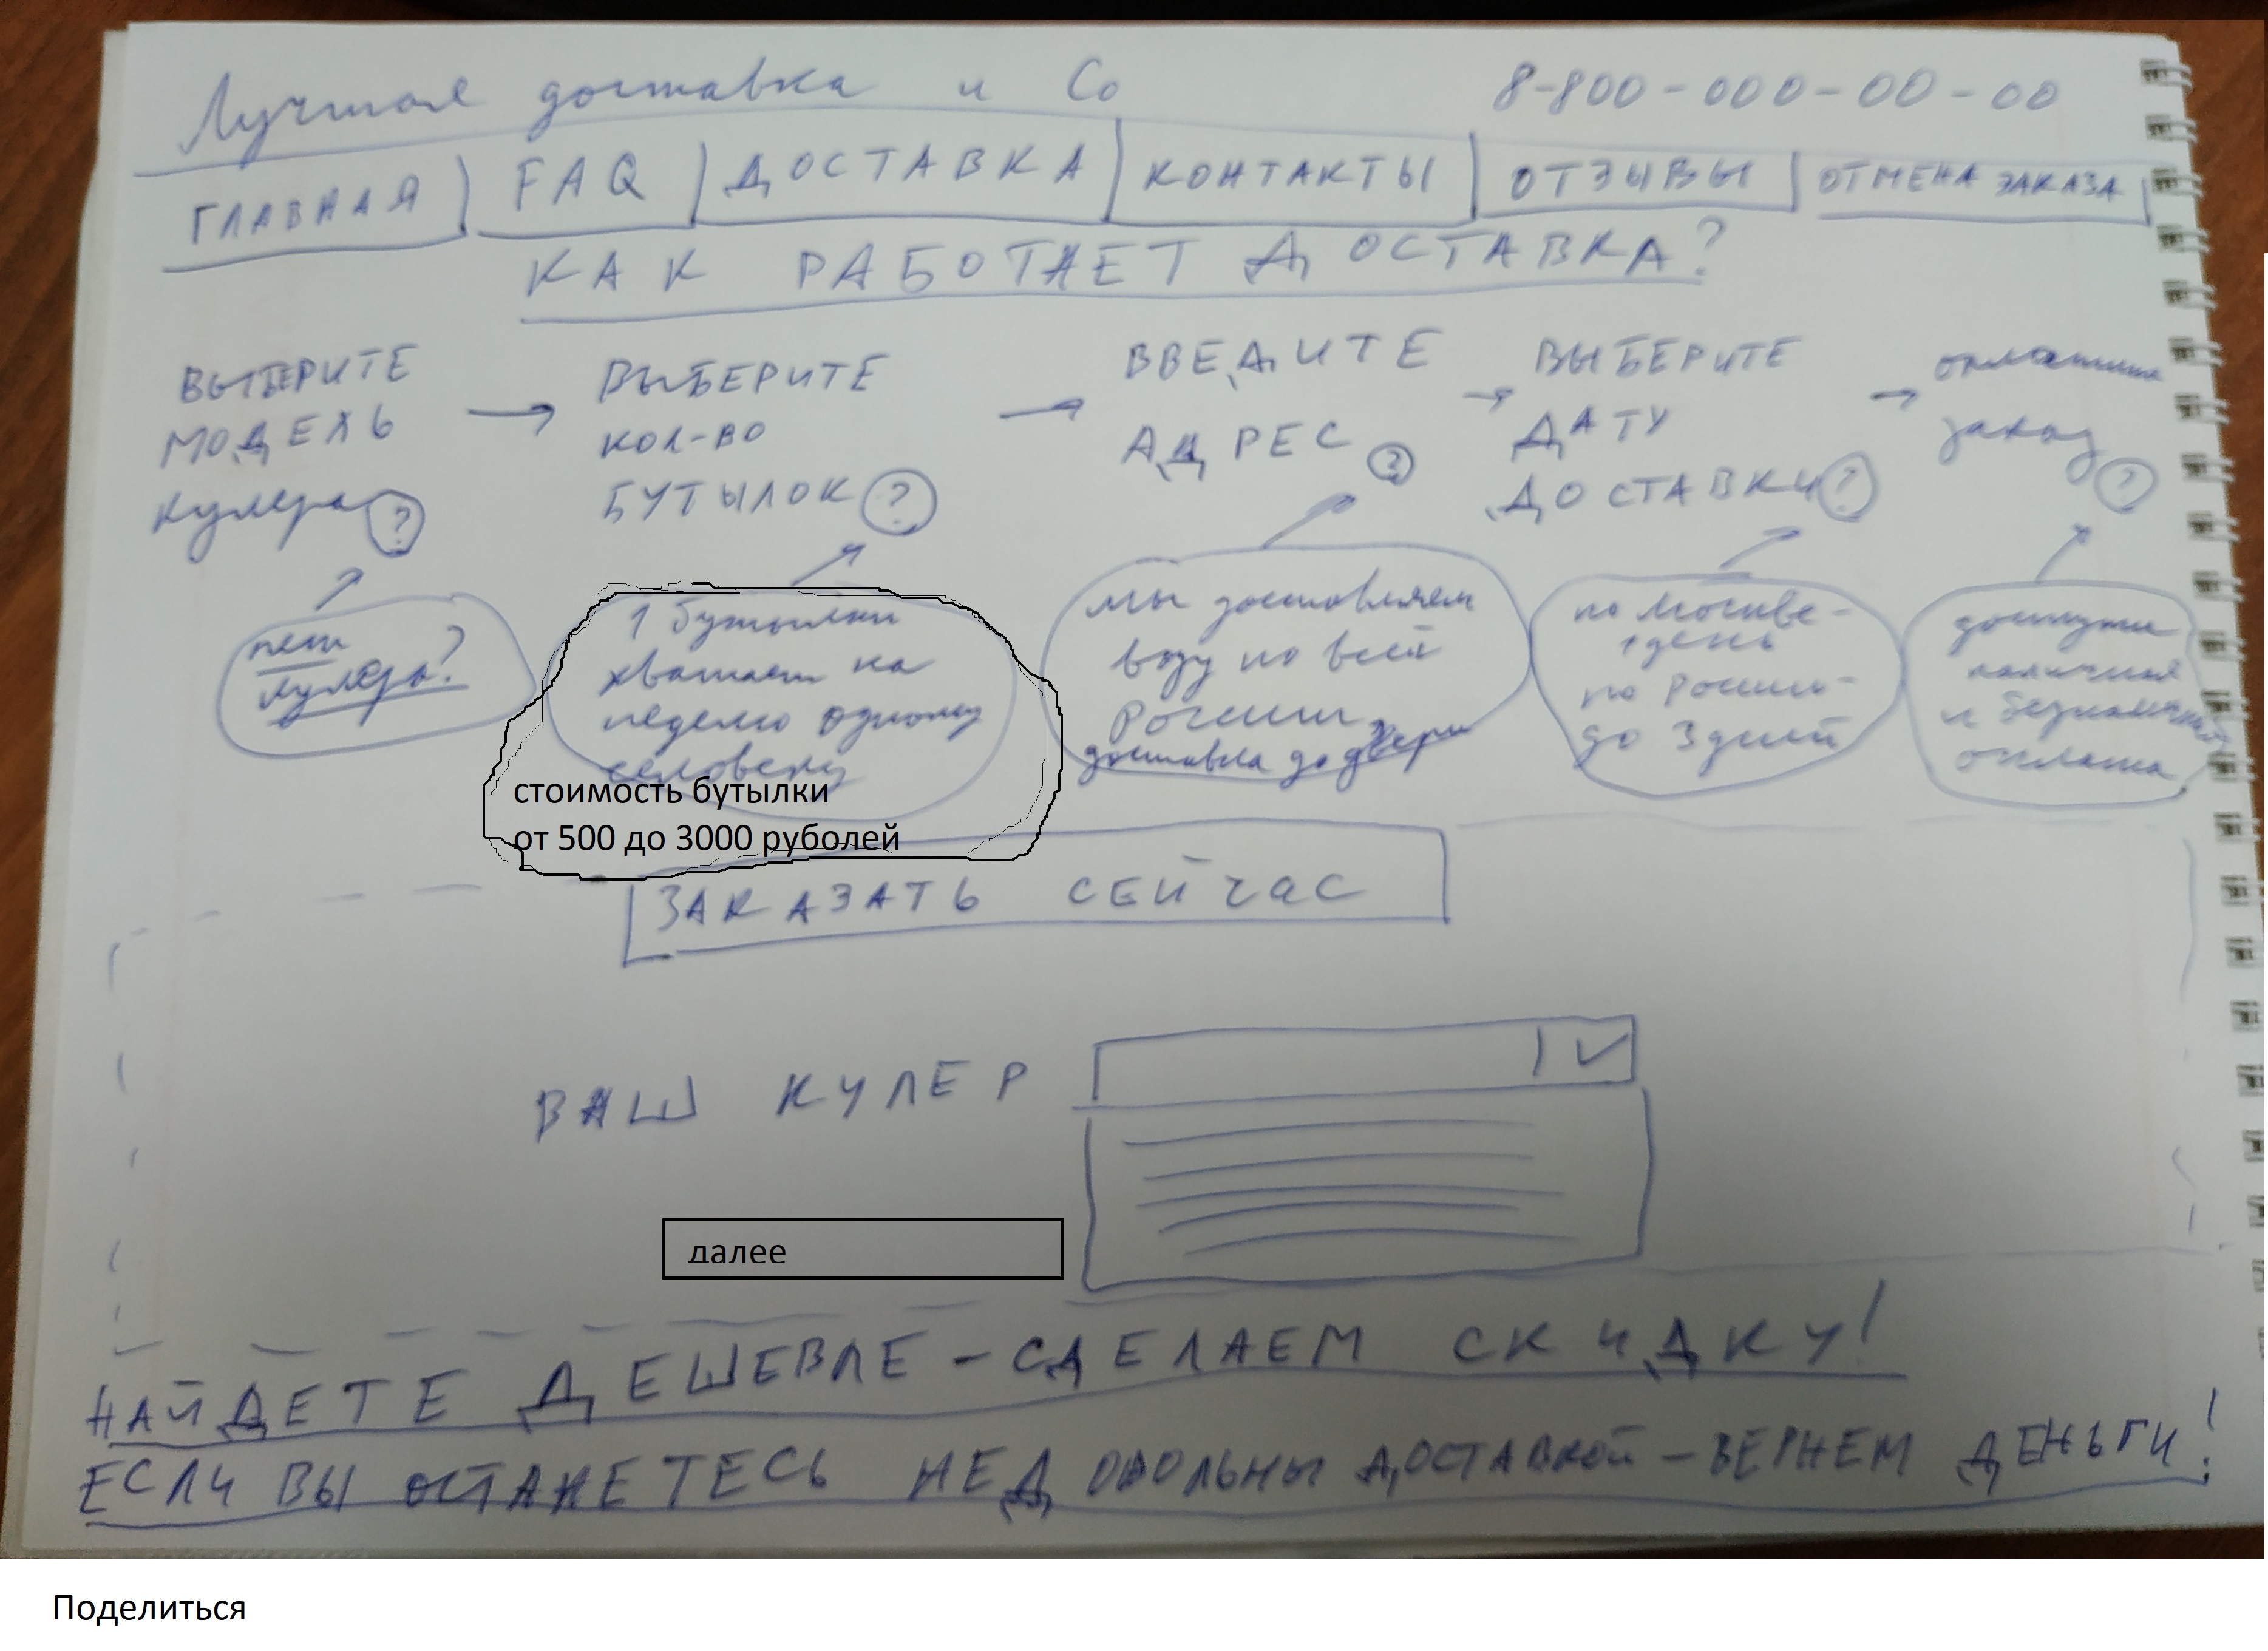 Лучшая доставка и Co
8-800-000-00-00
ГЛАВНАЯ
FAQ
ДОСТАВКА
КОНТАКТЫ
ОТЗЫВЫ
ОТМЕНА ЗАКАЗА
КАК РАБОТАЕТ ДОСТАВКА?
ВЫБЕРИТЕ
МОДЕЛЬ
кулера ?
ВЫБЕРИТЕ
КОЛ-ВО
БУТЫЛОК ?
ВВЕДИТЕ
АДРЕС ?
ВЫБЕРИТЕ
ДАТУ
ДОСТАВКИ ?
оплатите
заказ ?
нет
кулера?
1 бутылки
хватает на
неделю одному
человеку
стоимость бутылки
от 500 до 3000 руболей
мы доставляем
воду по всей
России
доставка до двери
по Москве -
1 день
по России -
до 3 дней
доступна
наличная
и безналичная
оплата
ЗАКАЗАТЬ СЕЙЧАС
ВАШ КУЛЕР
далее
НАЙДЕТЕ ДЕШЕВЛЕ - СДЕЛАЕМ СКИДКУ!
ЕСЛИ ВЫ ОСТАНЕТЕСЬ НЕДОВОЛЬНЫ ДОСТАВКОЙ - ВЕРНЕМ ДЕНЬГИ!
Поделиться